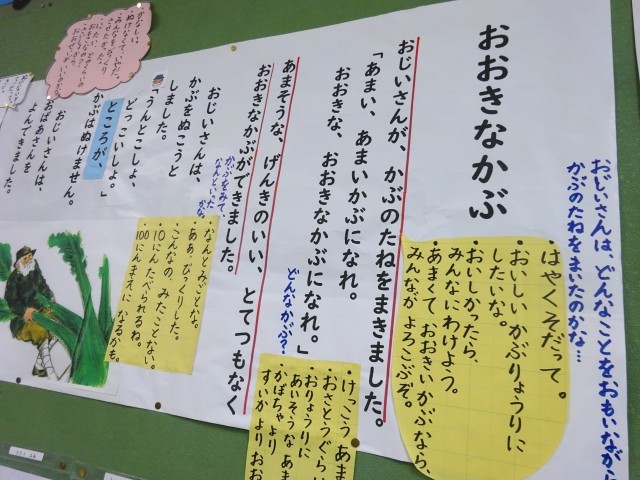 おじいさんは、どんなことをおもいながら
かぶのたねをまいたのかな…
おおきなかぶ
・はやくそだって。
・おいしいかぶりょうりに
したいな。
・おいしかったら、
みんなにわけよう。
・あまくておおきいかぶなら、
みんながよろこぶぞ。
おじいさんが、かぶのたねをまきました。
「あまい、あまいかぶになれ。
おおきな、おおきなかぶになれ。」
どんなかぶ?
・けっこうあま
・おさとうぐらい
・おりょうりに
・あいそうなあま
・かぼちゃより
すいかよりおお
あまそうな、げんきのいい、とてつもなく
おおきなかぶができました。
かぶをみて、
なんといった
かな
・なんとみごとな。
・ああ、びっくりした。
・こんなの、みたことない。
・10にんたべられるね。
・100にんまえになるかも。
おじいさんは、
かぶをぬこうと
しました。
「うんとこしょ、
どっこいしょ。」
ところが、
かぶはぬけません。
おじいさんは、
おばあさんを
よんできました。